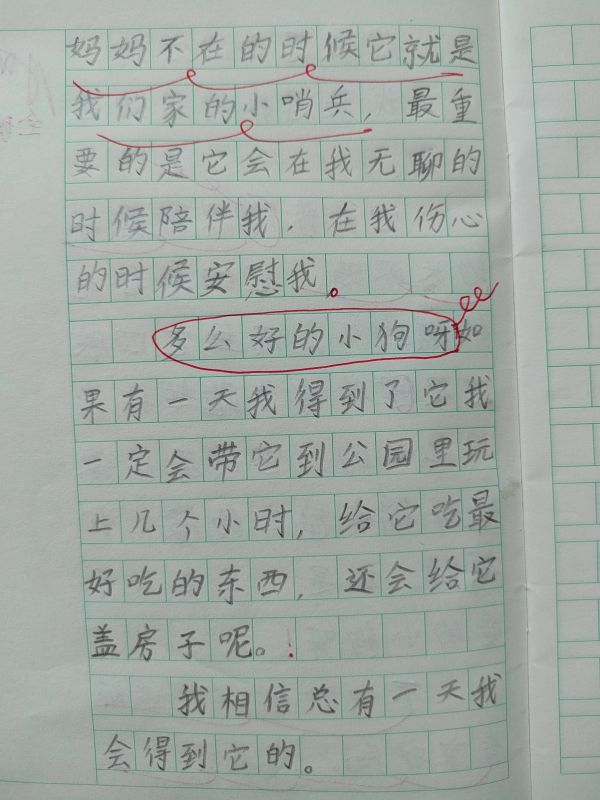 妈妈不在的时候它就是
我们家的小哨兵，最重
要的是它会在我无聊的
时候陪伴我，在我伤心
的时候安慰我。
多么好的小狗呀如
果有一天我得到了它我
一定会带它到公园里玩
上几个小时，给它吃最
好吃的东西，还会给它
盖房子呢。！
我相信总有一天我
会得到它的。